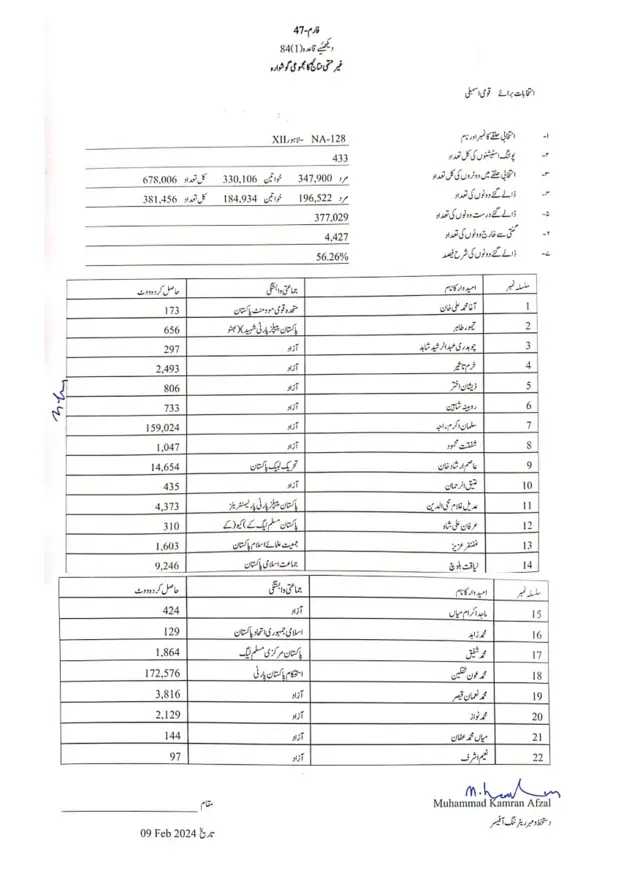 فارم-47
دیکھئیے قاعدہ (1)84
غیر حتمی نتائج کا مجموعی گوشوارہ
انتخابات برائے قومی اسمبلی
۱- انتخابی حلقے کا نمبر اور نام NA-128 -لاہور XII
۲- پولنگ اسٹیشنوں کی کل تعداد 433
۳- انتخابی حلقے میں ووٹروں کی کل تعداد مرد 347,900 خواتین 330,106 کل تعداد 678,006
۴- ڈالے گئے ووٹوں کی تعداد مرد 196,522 خواتین 184,934 کل تعداد 381,456
۵- ڈالے گئے درست ووٹوں کی تعداد 377,029
۶- گنتی سے خارج ووٹوں کی تعداد 4,427
۷- ڈالے گئے ووٹوں کی شرح فیصد 56.26%
سلسلہ نمبر امیدوار کا نام جماعتی وابستگی حاصل کردہ ووٹ
1 آغا محمد علی خان متحدہ قومی موومنٹ پاکستان 173
2 تیمور طاہر پاکستان پیپلز پارٹی شہید)(بھٹو 656
3 چوہدری عبدالرشید شاہد آزاد 297
4 خرم تاثیر آزاد 2,493
5 ذیشان اختر آزاد 806
6 روبینہ شاہین آزاد 733
7 سلمان اکرم راجہ آزاد 159,024
8 شفقت محمود آزاد 1,047
9 عاصم ارشاد خان تحریک لبیک پاکستان 14,654
10 عتیق الرحمان آزاد 435
11 عدیل غلام محی الدین پاکستان پیپلز پارٹی پارلیمنٹیرینز 4,373
12 عرفان علی شاہ پاکستان مسلم لیگ کے)کیو(کے 310
13 غضنفر عزیز جمعیت علمائے اسلام پاکستان 1,603
14 لیاقت بلوچ جماعت اسلامی پاکستان 9,246
سلسلہ نمبر امیدوار کا نام جماعتی وابستگی حاصل کردہ ووٹ
15 ماجد اکرام میاں آزاد 424
16 محمد زاہد اسلامی جمہوری اتحاد پاکستان 129
17 محمد شفیق پاکستان مرکزی مسلم لیگ 1,864
18 محمد عون ثقلین استحکام پاکستان پارٹی 172,576
19 محمد نعمان قیصر آزاد 3,816
20 محمد نواز آزاد 2,129
21 میاں محمد عفان آزاد 144
22 نعیم اشرف آزاد 97
Muhammad Kamran Afzal
دستخط و مہر ریٹرننگ آفیسر
مقام
تاریخ 09 Feb 2024